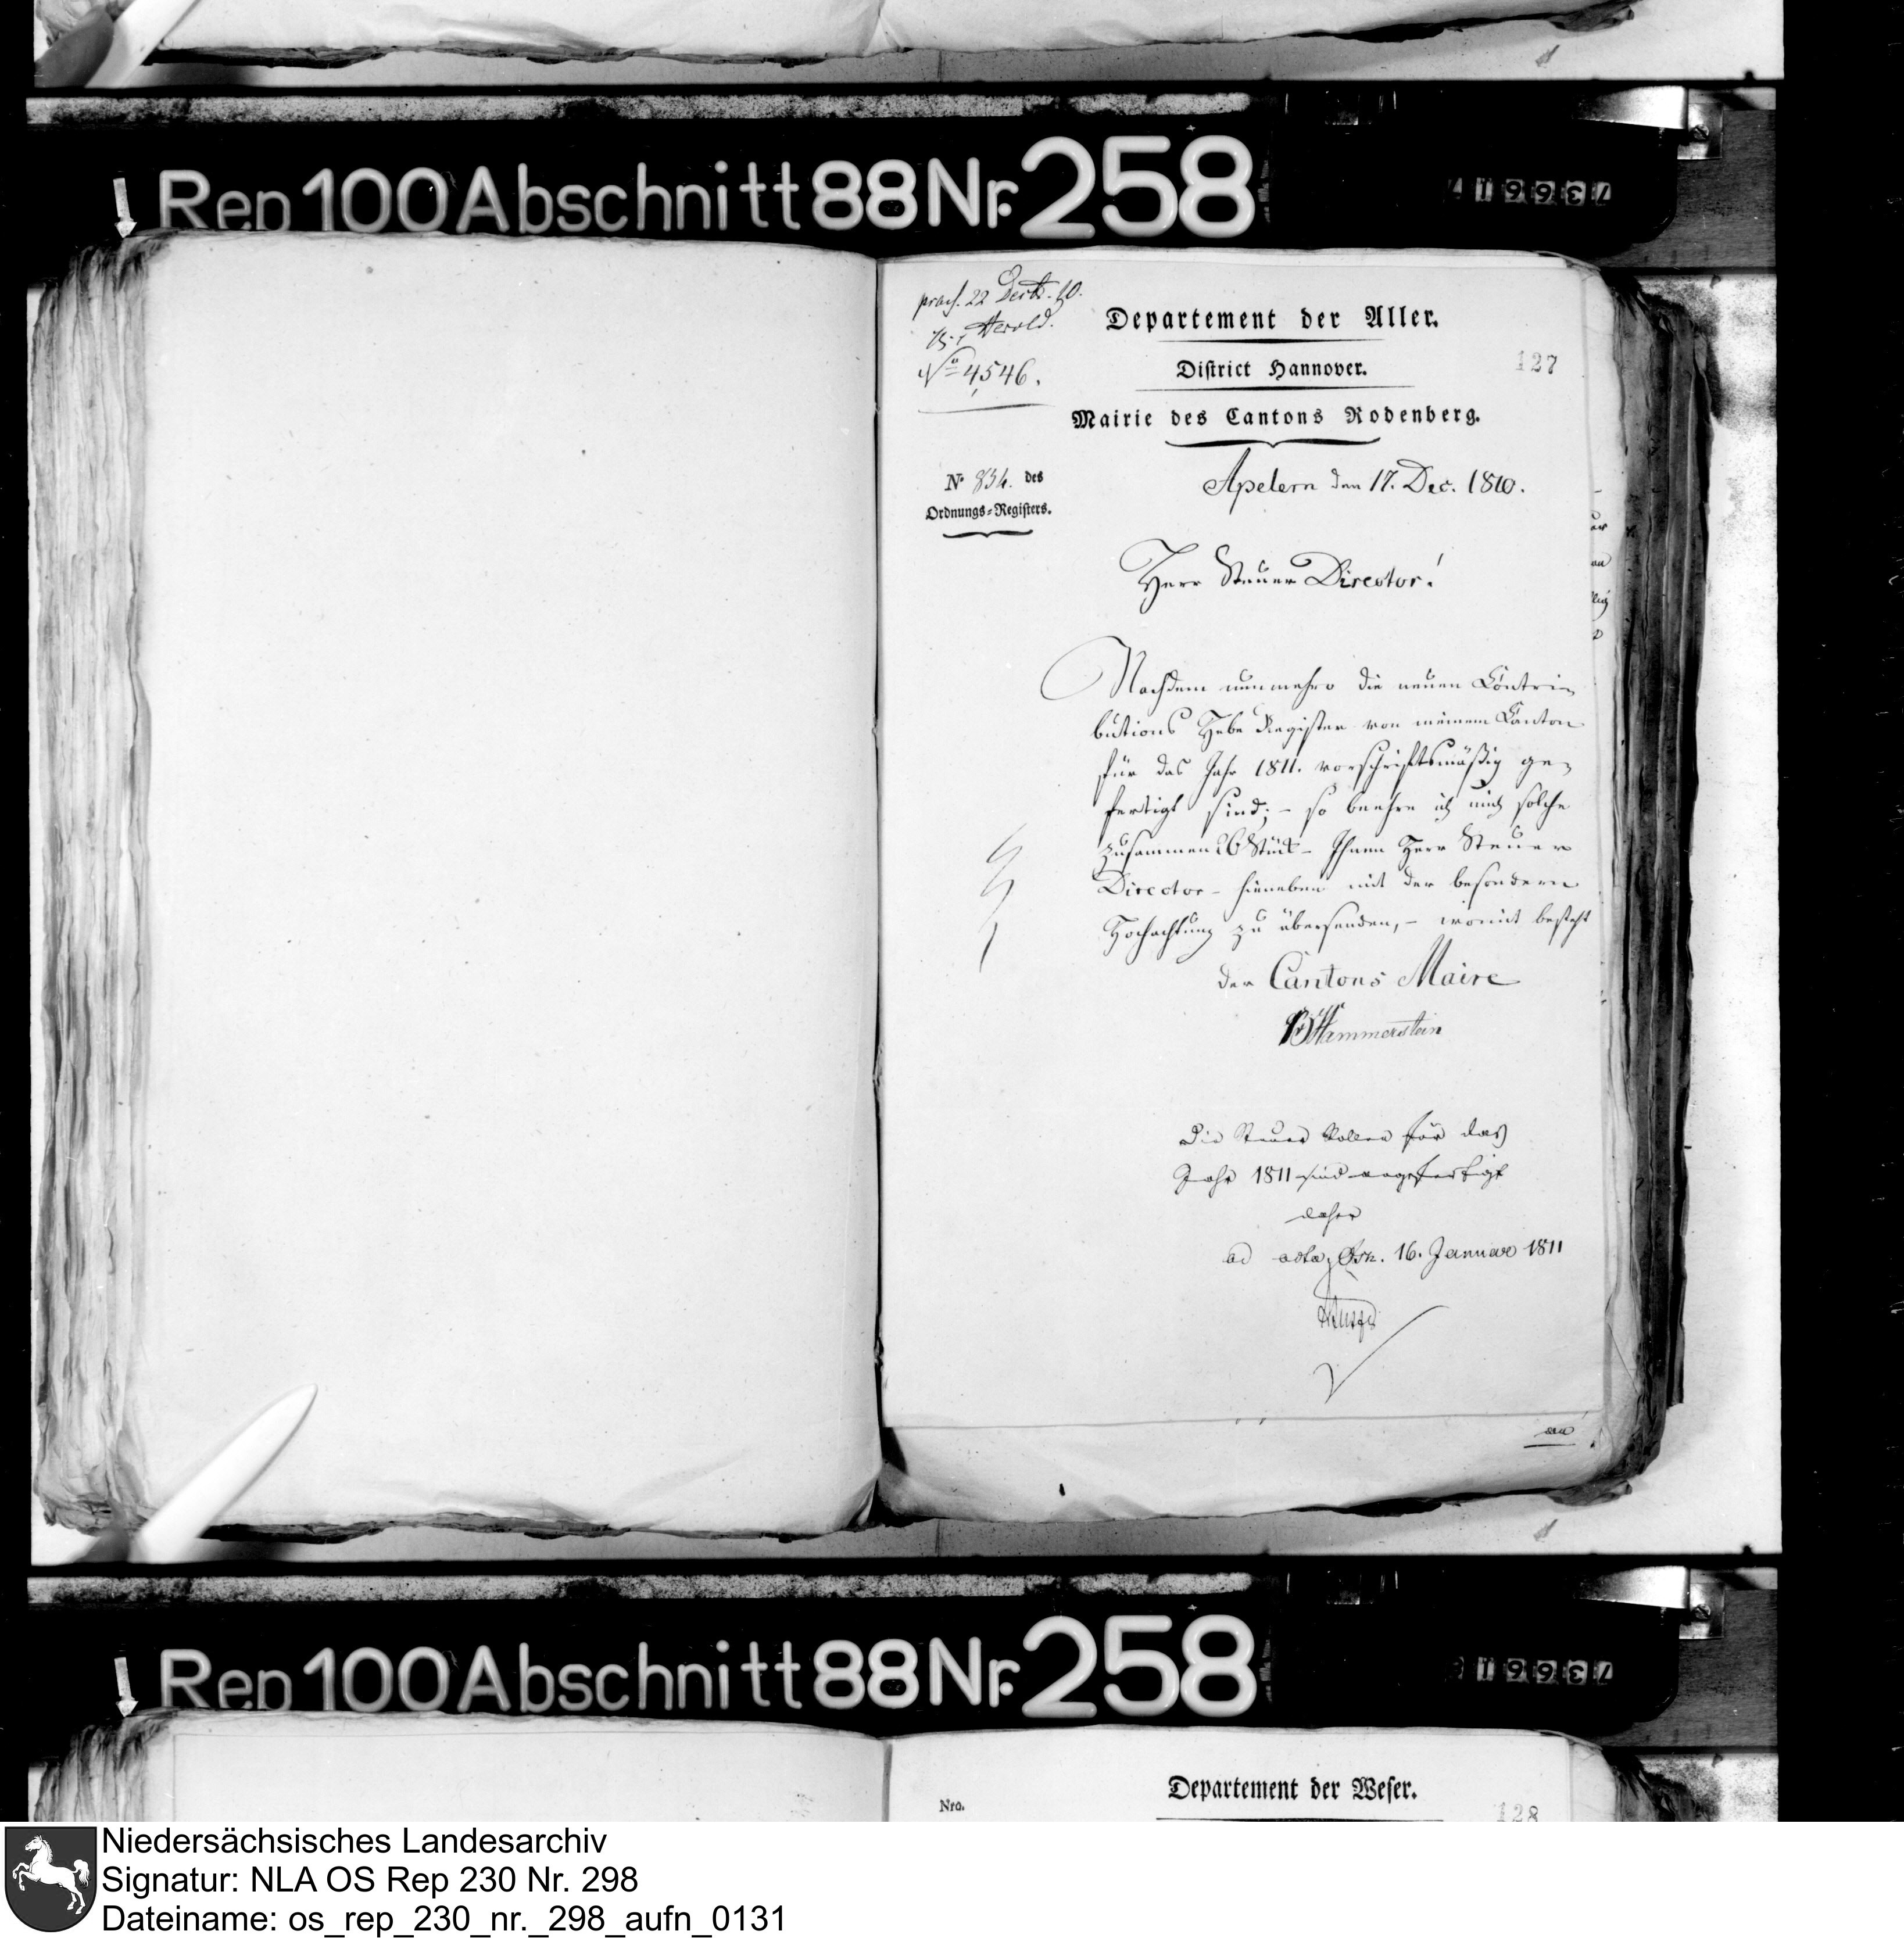 Rep 100 Abschnitt 88 Nr. 258
praes. 22 Decb. 10.
Herold.
No 4546.
Departement der Aller.
District Hannover.
127
Mairie des Cantons Rodenberg.
N. 834. des
Ordnungs-Registers.
Apelern den 17. Dec. 1810.
Herr Steuer Director!
Nachdem nunmehro die neuen Contri-
butions Hebe Register von meinem Canton
für das Jahr 1811. vorschriftsmäßig ge-
fertigt sind; - so beehre ich mich solche
zusammen 26 Stück - Ihnen Herr Steuer
Director - hieneben mit der besondern
Hochachtung zu übersenden, - womit besteht
der Cantons Maire
Hammerstein
Die Steuer Rollen für das
Jahr 1811 sind angefertigt
daher
ad acta, Osn. 16. Januar 1811
Rep 100 Abschnitt 88 Nr. 258
Departement der Weser.
Nro.
128
Niedersächsisches Landesarchiv
Signatur: NLA OS Rep 230 Nr. 298
Dateiname: os_rep_230_nr._298_aufn_0131